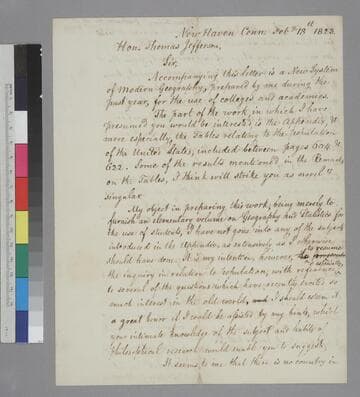 New Haven Conn. Feb. 13th 1823.
Hon. Thomas Jefferson,
Sir,
Accompanying this letter is a New System
of Modern Geography, prepared by me during the
past year, for the use of colleges and academies.
The part of the work in which I have
presumed you would be interested is the Appendix, &
more especially, the Tables relating to the Population
of the United States, included between pages 604 &
622. Some of the results mentioned in the Remarks
on the Tables, I think will strike you as novel &
singular.
My object in preparing this work, being merely to
furnish an elementary volume on Geography and Statistics for
the use of students, I have not gone into any of the subjects
introduced in the Appendix as extensively as I otherwise
should have done. It is my intention, however, to resume
the inquiry in relation to population, with reference
to several of the questions which have recently excited so
much interest in the old world, and I should esteem it
a great honor if I could be assisted by any hints, which
your intimate knowledge of the subject and habits of
Philosophical research would enable you to suggest.
It seems to me that there is no country in